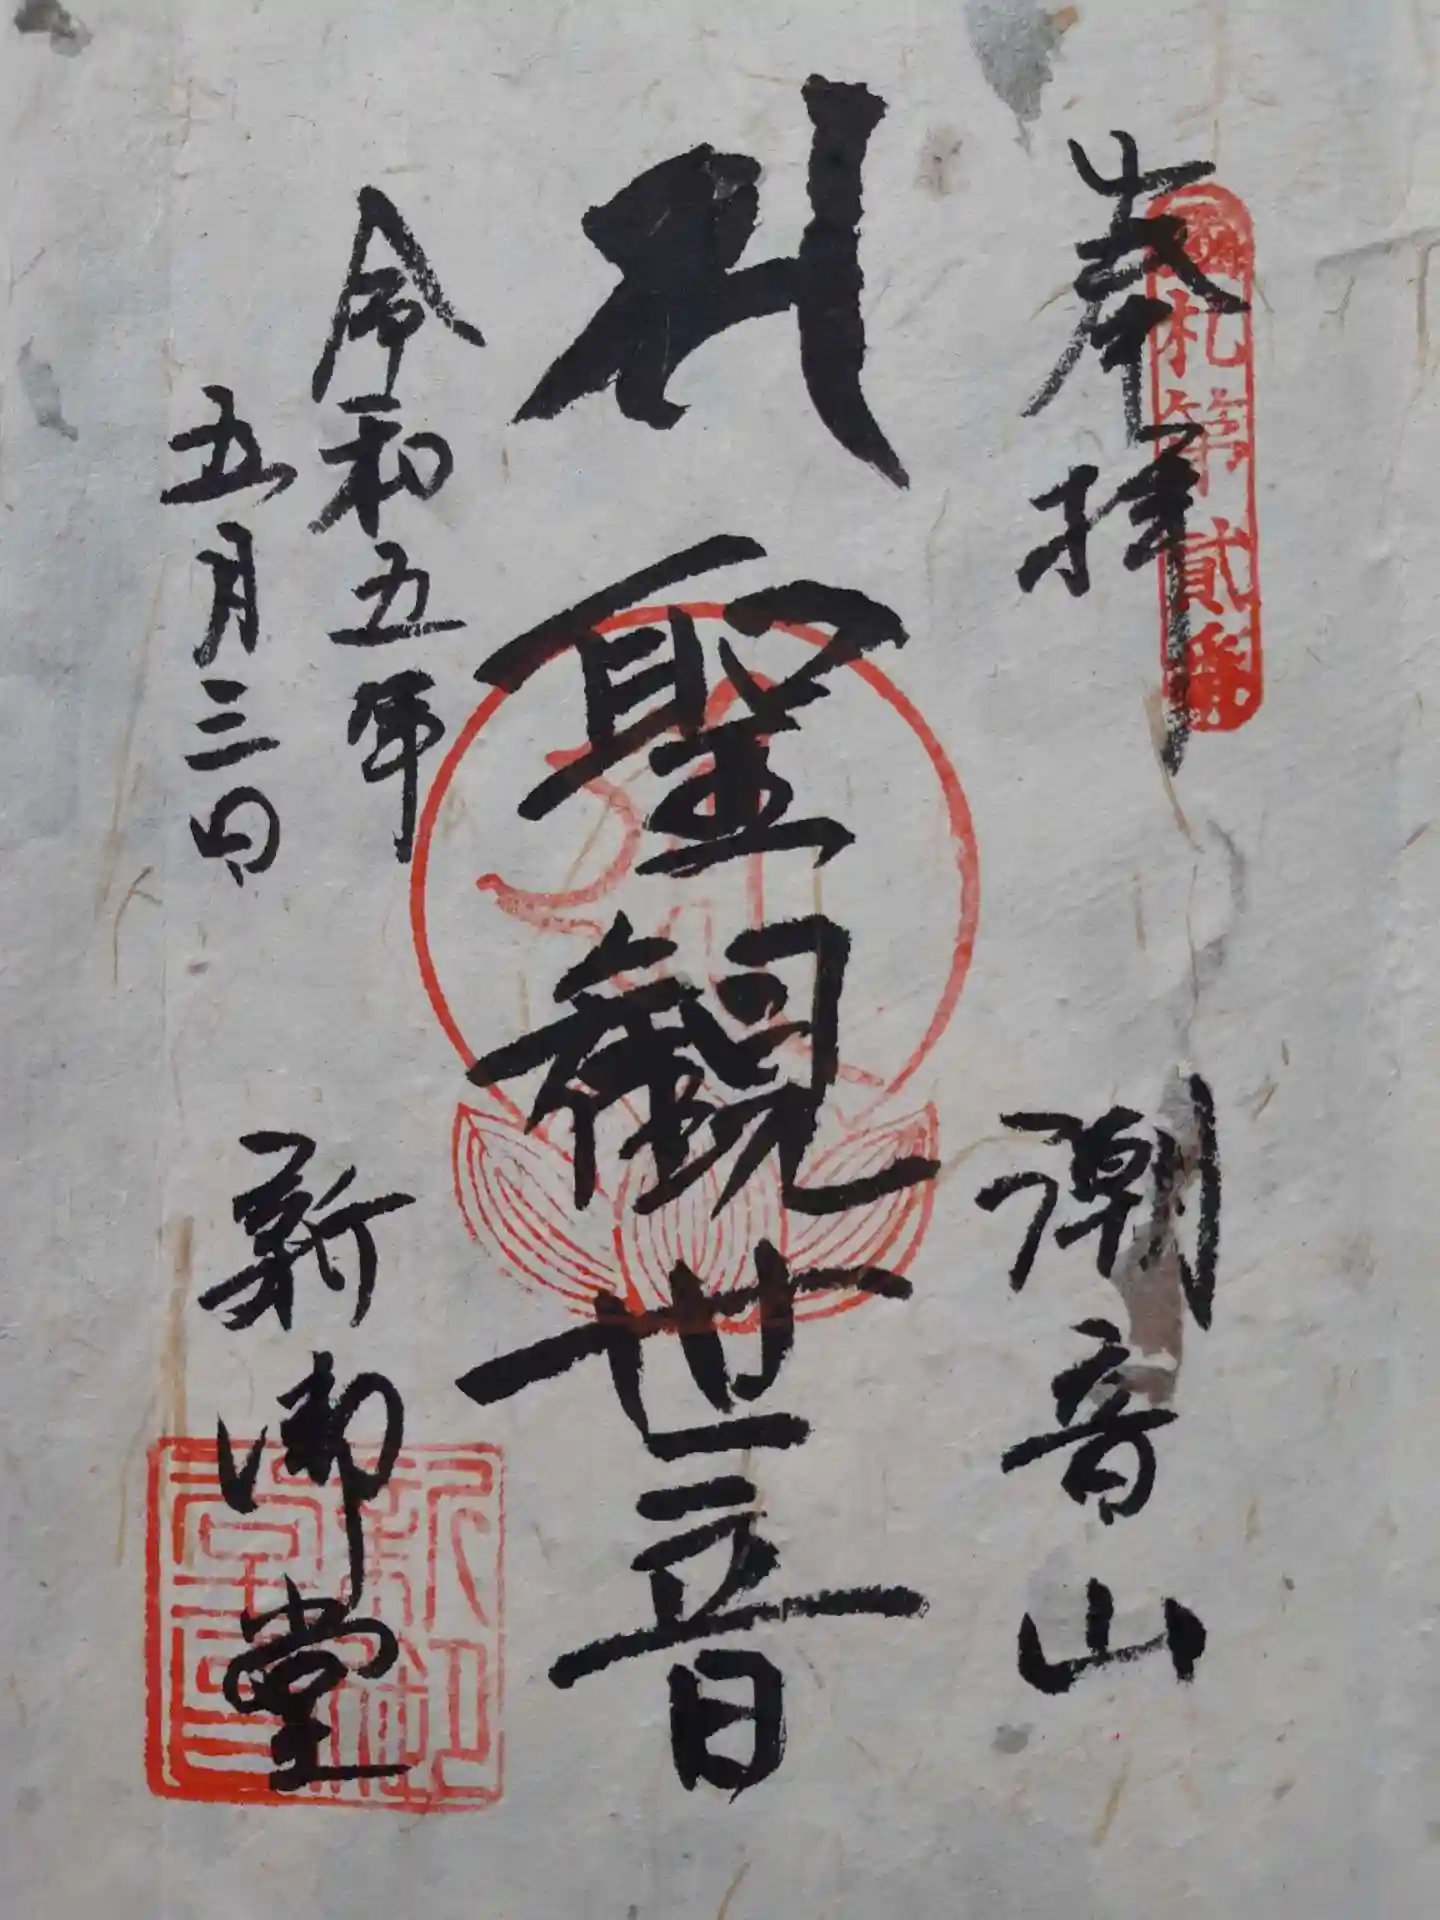 奉拝
札第貳番
潮音山
聖観世音
令和五年
五月三日
新御堂